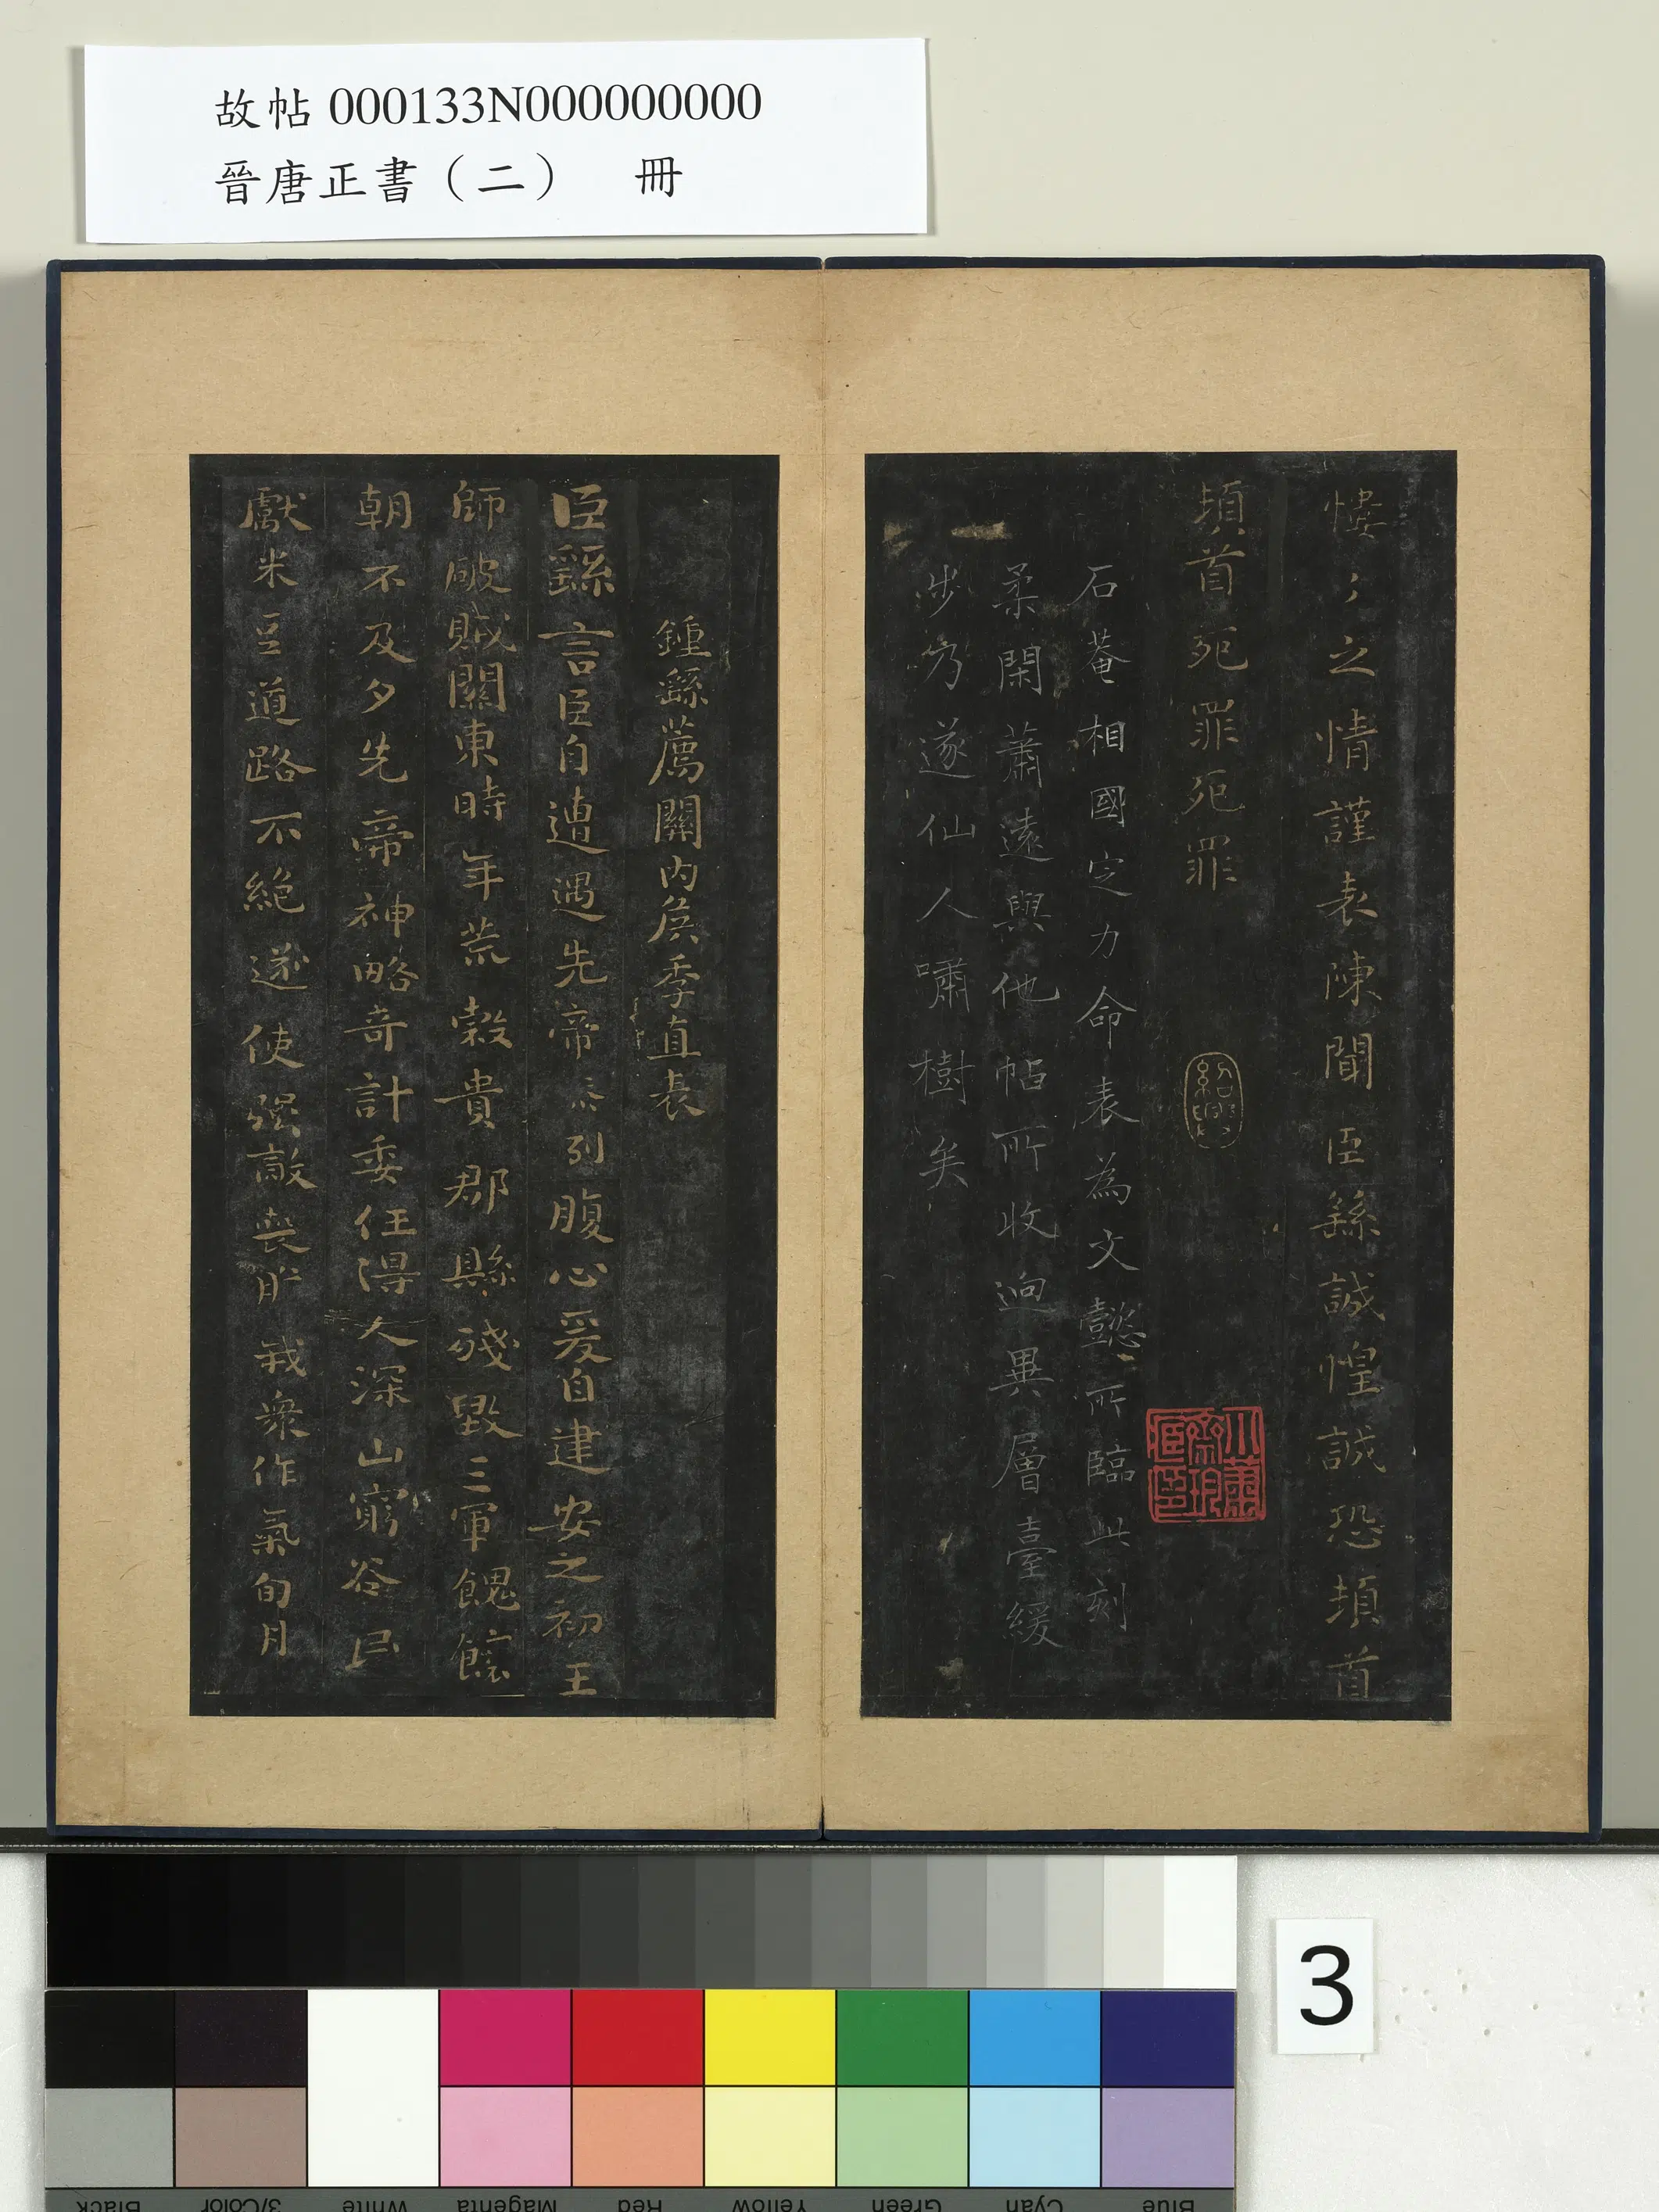 故帖 000133N000000000
晉唐正書（二）　冊
慺〻之情謹表陳聞臣繇誠惶誠恐頓首
頓首死罪死罪
紹興
石菴相國定力命表為文懿所臨此刻
柔閑蕭遠與他帖所收迥異層臺緩
步乃遂仙人嘯樹矣
鍾繇薦關內侯季直表
臣繇言臣自遭遇先帝忝列腹心爰自建安之初王
師破賊關東時年荒穀貴郡縣殘毀三軍餽饟
朝不及夕先帝神略奇計委任得人深山窮谷民
獻米豆道路不絕遂使強敵喪膽我衆作氣旬月
3
Black
3/Color
White
Magenta
Red
Yellow
Green
Cyan
Blue